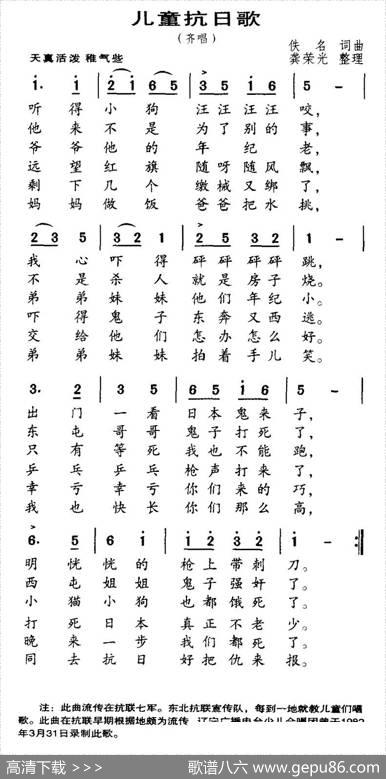 儿童抗日歌
(齐唱)
佚名 词曲
天真活泼 稚气些
龚荣光 整理
1. 1 | 2 1 6 5 | 3 5 1 6 | 5 - |
听得小狗汪汪汪汪咬,
他来不是为了别的事,
爷爷他的年纪老,
远望红旗随呀随风飘,
剩下几个缴械又绑了,
妈妈做饭爸爸把水挑,
2 3 5 | 3 2 1 | 2 5 3 2 | 1 - |
我心吓得砰砰砰砰跳,
不是杀人就是房子烧。
弟弟妹妹他们年纪小。
吓得鬼子东奔又西逃。
交给他们怎办怎么好。
弟弟妹妹拍着手儿笑。
3. 2 | 3 5 | 6 5 1 6 | 5 - |
出门一看日本鬼来子,
东屯哥哥鬼子打死了,
只有等死我也不能跑,
乒乓乒乓枪声打来了,
幸亏幸亏你们来的巧,
我也快长你们那么高,
6. 5 | 6 1 | 1 2 3 2 | 1 - :|
明恍恍的枪上带刺刀。
西屯姐姐鬼子强奸了。
小猫小狗也都饿死了。
打死日本真正不老少。
晚来一步我们都仇来。
同去抗日好把仇来报。
注:此曲流传在抗联七军。东北抗联宣传队,每到一地就教儿童们唱
歌。此曲在抗联早期根据地颇为流传。辽宁广播电台少儿合唱团曾于1982
年3月31日录制此歌。
高清下载 >>>
歌谱八六 www.gepu86.com